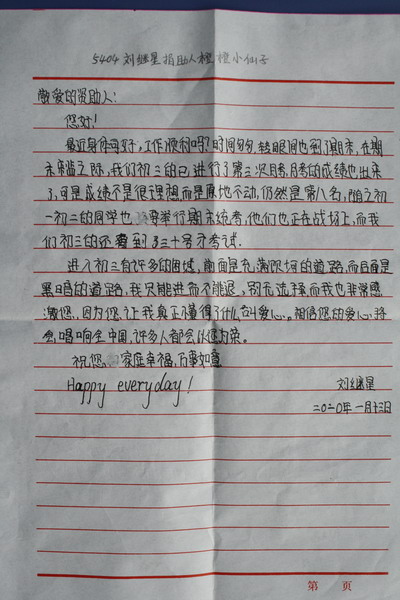 5404 刘继星捐助人橙橙小仙子
敬爱的资助人:
您好!
最近身体可好,工作顺利吗?时间匆匆,转眼间也到了期末,在期
末来临之际,我们初三的已进行了第三次月考,月考的成绩也出来
了,可是成绩不是很理想而是原地不动,仍然是第八名,随之初
一初二的同学也要举行期末统考,他们也正在战场上,而我
们初三的还要到三十号才考试。
进入初三有许多的困惑,前面是充满阳光的道路,而后面是
黑暗的道路,我只能进而不能退,别无选择而我也非常感
激您,因为您让我真正懂得了什么叫爱心。相信您的爱心,将
会唱响全中国,许多人都会以您为荣。
祝您:家庭幸福,万事如意
Happy everyday!
刘继星
二0二0年一月十三日
第 页